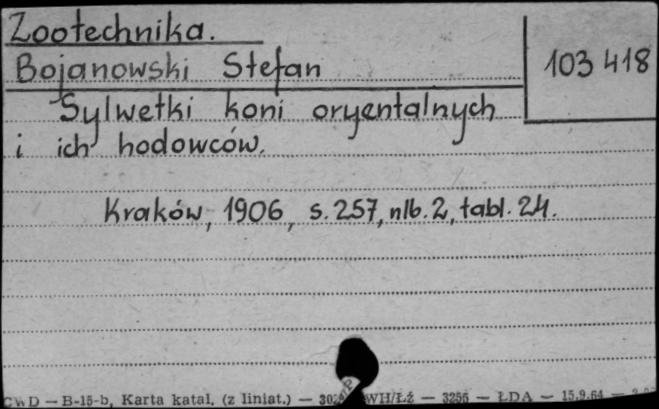 Zootechnika.
Bojanowski Stefan
103 418
Sylwetki koni oryentalnych
i ich hodowców.
Kraków, 1906, s. 257, nlb. 2, tabl. 24.
CWD — B-15-b, Karta katal. (z liniat.) — WH/Łź — 3256 — ŁDA — 15.9.64 —